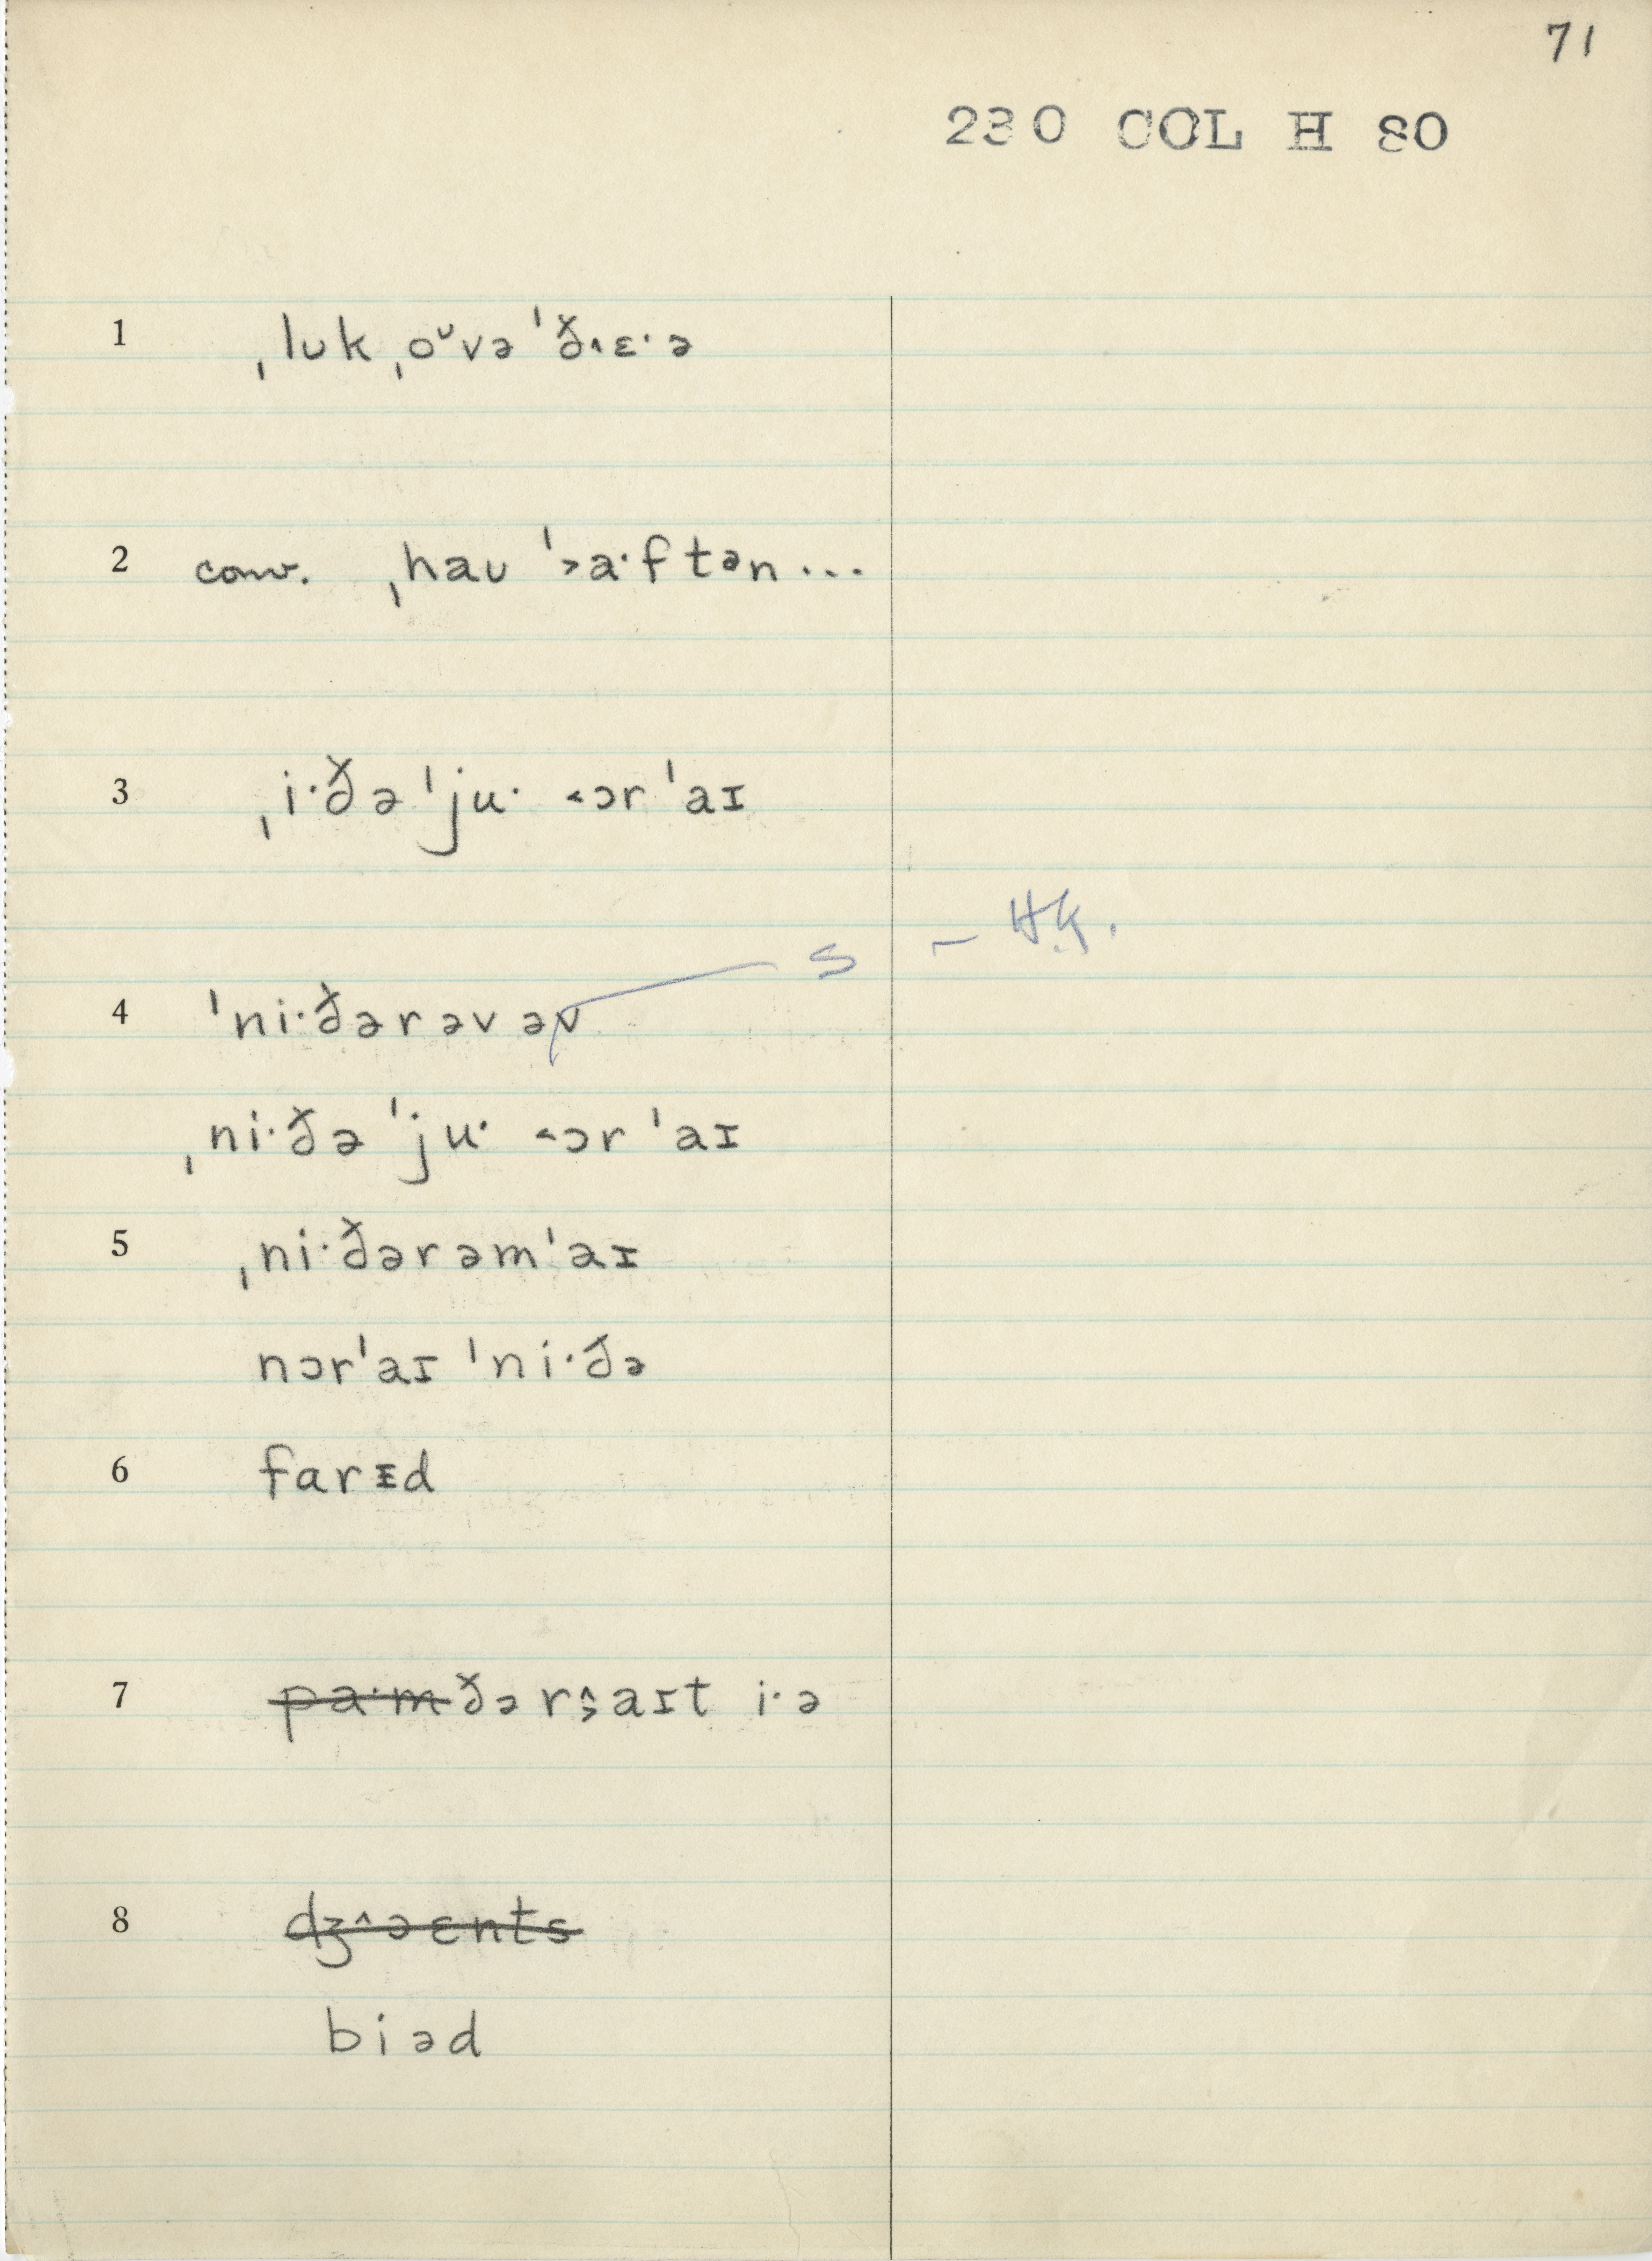 71
230 COL H 80
1 ˌlʊk ˌoᶷvə ˈð˄ɛ·ə
2 conv. ˌhaʊ ˈ˃a·ftən...
3 ˌi·ðə ˈju· ˂ɔr ˈaɪ
s – H.K.
4 ˈni·ðərəvəv
ˌni·ðə ˈju· ˂ɔr ˈaɪ
5 ˌni·ðərəmˈaɪ
nɔrˈaɪ ˈni·ðə
6 farɪd
7 pa·m ðər˰aɪt i·ə
8 dʒ^əɛnts
biəd